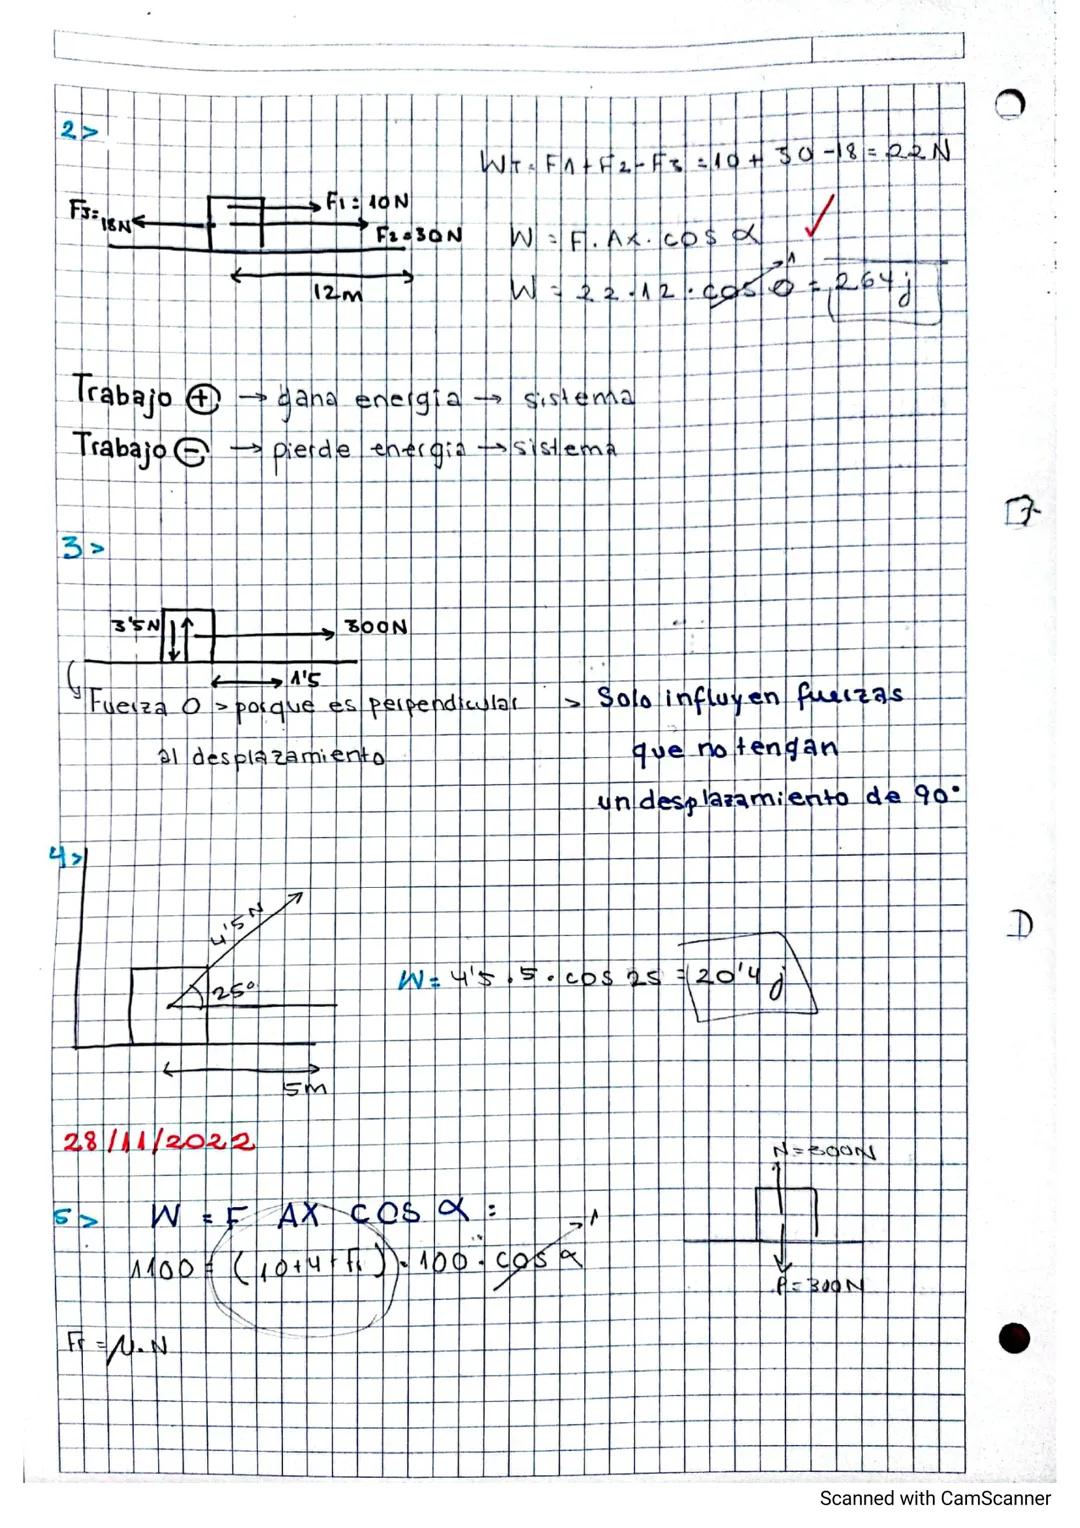 2>
WT = F1 + F2 - F3 = 10 + 30 - 18 = 22 N
F3 = 18N
F1 = 10N
F2 = 30N
12m
W = F. Ax. cos α ✓
W = 22.12. cos 0 = 264 j
1
Trabajo ⊕ → gana energía → sistema
Trabajo ⊖ → pierde energía → sistema
3>
3'5N
300N
1'5
Fuerza 0 > porque es perpendicular
al desplazamiento
> Solo influyen fuerzas
que no tengan
un desplazamiento de 90°
4>
4'5N
25°
W = 4'5 . 5 . cos 25 = 20'4 j
5m
28/11/2022
N = 300N
P = 300N
5> W = F AX COS α =
1100 = (10+4+Fr) . 100 . cos α
1
Fr = μ. N
Scanned with CamScanner